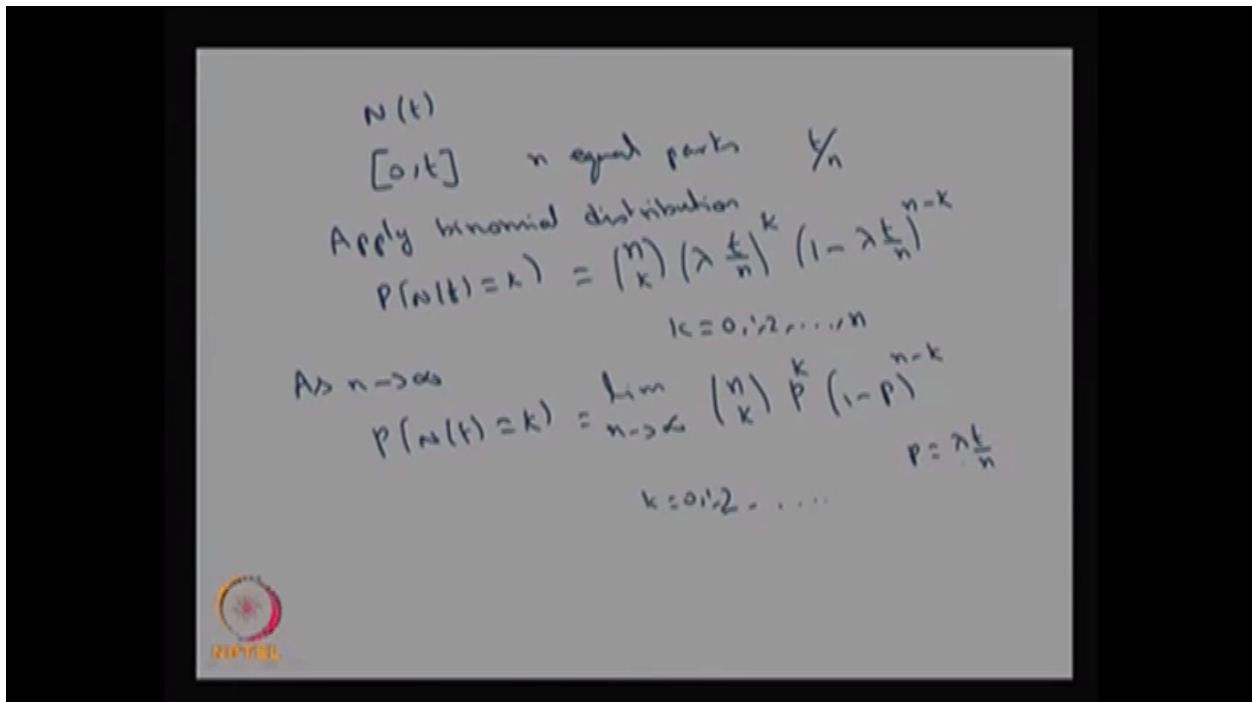 N(t)
[0,t] n equal parts t/n
Apply binomial distribution
P(N(t)=k) = (n k) (λ t/n)^k (1-λ t/n)^n-k
k=0,1,2,....,n
As n->∞
P(N(t)=k) = lim n->∞ (n k) p^k (1-p)^n-k
p = λ t/n
k=0,1,2 . . . . .
NPTEL